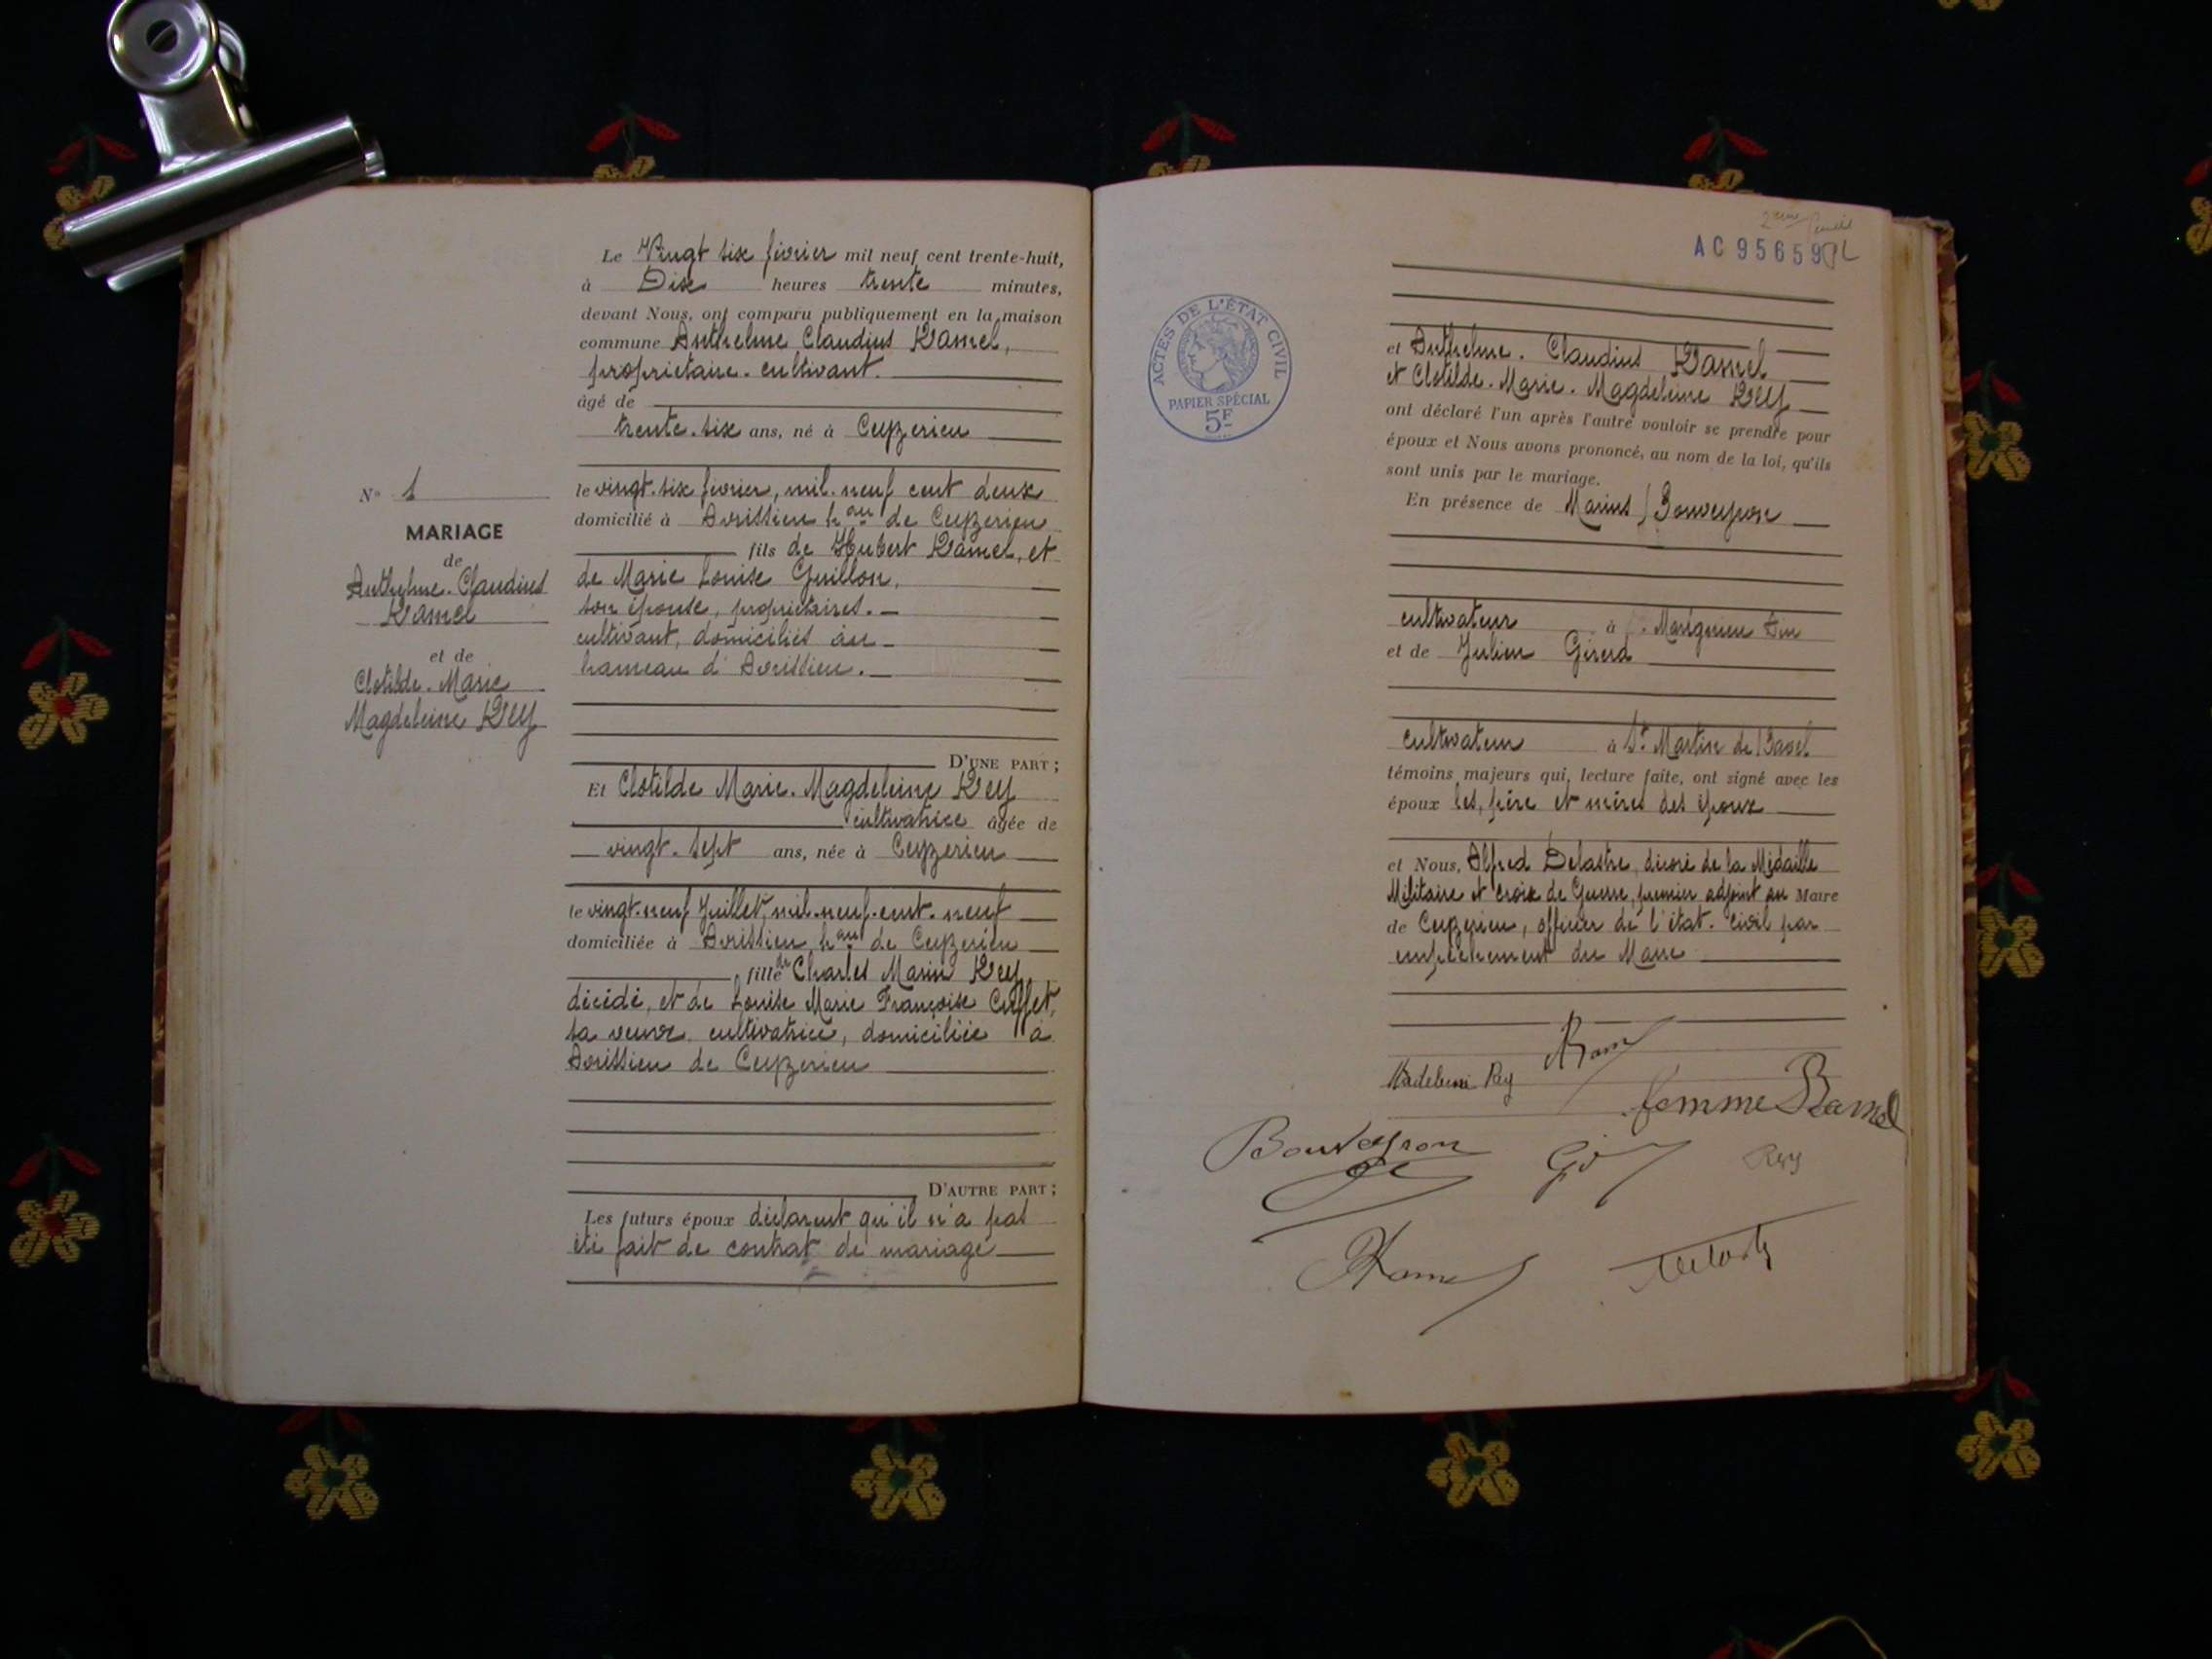 Le Vingt six février mil neuf cent trente-huit,
à Dix heures trente minutes,
devant Nous, ont comparu publiquement en la maison
commune Anthelme Claudius Ramel,
propriétaire-cultivant.
âgé de
trente-six ans, né à Ceyzerieu
le vingt-six février, mil-neuf cent deux
domicilié à Avrissieu h.au de Ceyzerieu
fils de Hubert Ramel, et
de Marie Louise Guillon,
son épouse, propriétaires.
cultivant, domiciliés au
hameau d'Avrissieu.
D'UNE PART ;
N° 1
MARIAGE
de
Anthelme-Claudius
Ramel
et de
Clotilde-Marie
Magdeleine Rey
Et Clotilde Marie-Magdeleine Rey
cultivatrice âgée de
vingt-sept ans, née à Ceyzerieu
le vingt-neuf Juillet, mil-neuf-cent-neuf
domiciliée à Avrissieu, h.au de Ceyzerieu
fille de Charles Marin Rey
décédé, et de Louise Marie Françoise
sa veuve cultivatrice, domiciliée à
Avrissieu de Ceyzerieu
D'AUTRE PART ;
Les futurs époux déclarent qu'il n'a pas
été fait de contrat de mariage
2eme
AC 95659
ACTES DE L'ÉTAT CIVIL
PAPIER SPÉCIAL
5F
et Anthelme-Claudius Ramel
et Clotilde-Marie-Magdeleine Rey
ont déclaré l'un après l'autre vouloir se prendre pour
époux et Nous avons prononcé, au nom de la loi, qu'ils
sont unis par le mariage.
En présence de Marius Bouveyron
cultivateur à
et de Julien Girerd
cultivateur à St Martin de Bavel
témoins majeurs qui, lecture faite, ont signé avec les
époux les, père et mères des époux
et Nous, Alfred Delastre, décoré de la Médaille
Militaire et Croix de Guerre, premier adjoint au Maire
de Ceyzerieu, officier de l'état-civil par
empêchement du Maire
Madeleine Rey
femme Ramel
Bouveyron
Rey